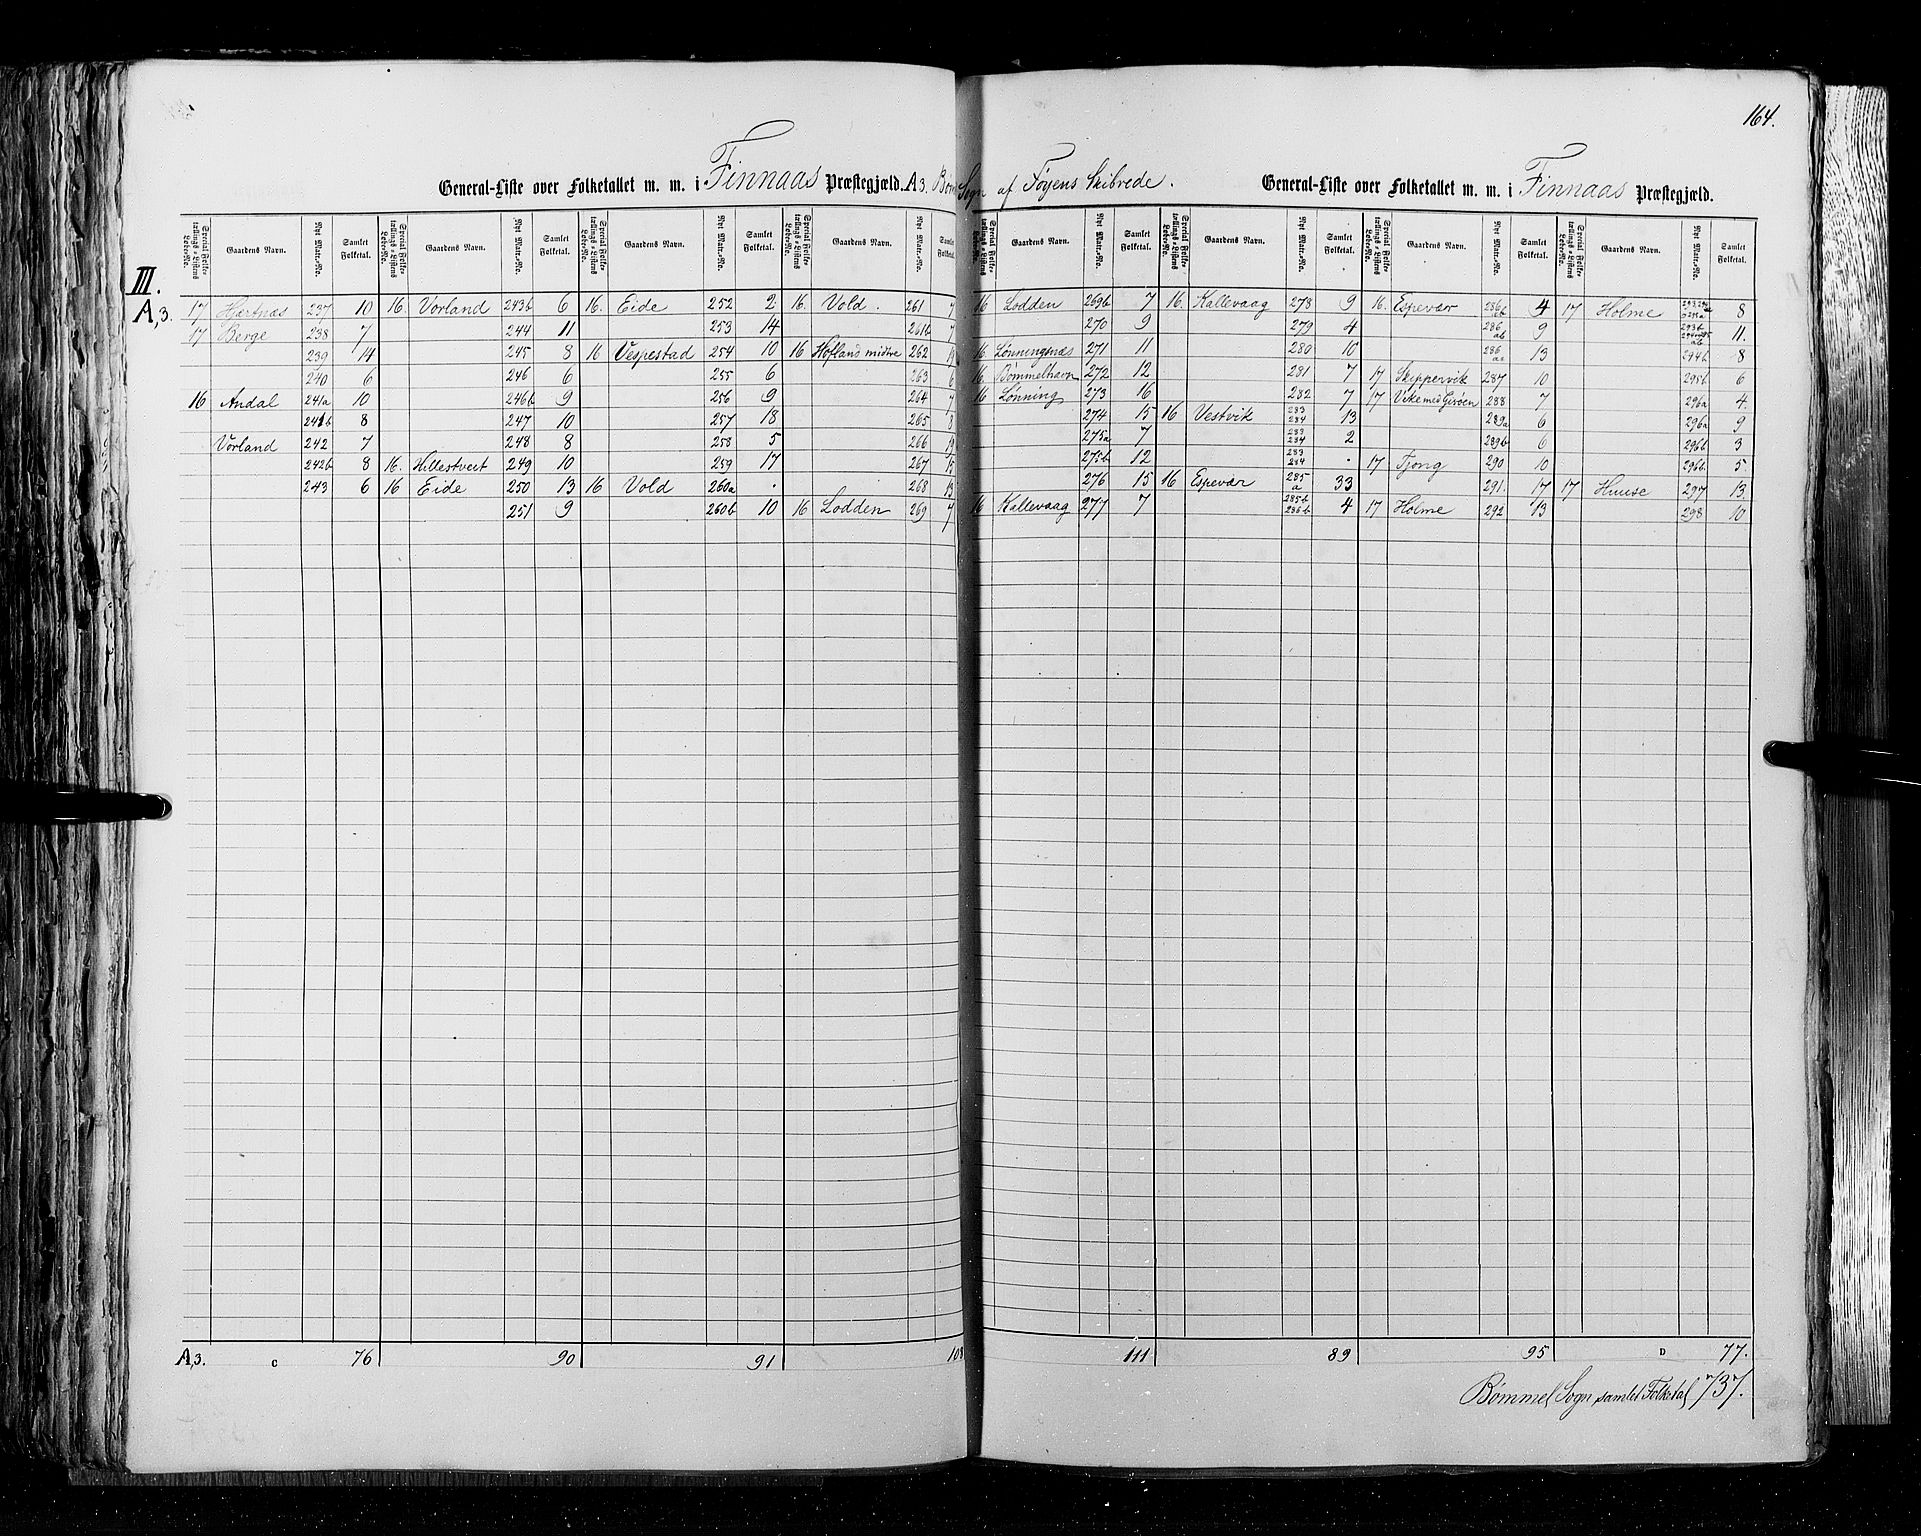 164.
General-Liste over Folketallet m. m. i Finnaas Præstegjæld. A3. Bøm Sogn af Føyens Skibrede. General-Liste over Folketallet m. m. i Finnaas Præstegjæld.
Special Folketællings-Listens Løbe-No. Gaardens Navn. Nyt Matr.-No. Samlet Folketal. Special Folketællings-Listens Løbe-No. Gaardens Navn. Nyt Matr.-No. Samlet Folketal. Special Folketællings-Listens Løbe-No. Gaardens Navn. Nyt Matr.-No. Samlet Folketal. Special Folketællings-Listens Løbe-No. Gaardens Navn. Nyt Matr.-No. Samlet Folketal. Special Folketællings-Listens Løbe-No. Gaardens Navn. Nyt Matr.-No. Samlet Folketal. Special Folketællings-Listens Løbe-No. Gaardens Navn. Nyt Matr.-No. Samlet Folketal. Special Folketællings-Listens Løbe-No. Gaardens Navn. Nyt Matr.-No. Samlet Folketal. Special Folketællings-Listens Løbe-No. Gaardens Navn. Nyt Matr.-No. Samlet Folketal.
III.
A,3. 17 Hærtnæs 237 10 16. Vorland 243b 6 16. Eide 252 2 16. Vold. 261 7 16 Lodden 269b 7 16. Kallevaag 278 9 16. Espevær 286b 4 17 Holme 8
17 Berge 238 7 244 11 253 14 261b 7 270 9 279 4 286 ab 9 293b 11.
239 14 245 8 16 Vespestad 254 10 16 Hofland midtre 262 19 16. Lønningsnæs 271 11 280 10 286 aa 13 294b 8
240 6 246 6 255 6 263 6 16. Bømmelhavn 272 12 281 7 17 Skippervik 287 10 295b 6
16 Andal 241a 10 246b 9 256 9 264 7 16 Lønning 273 16 282 7 17 Vikemed Gisøen 288 7 296a 4.
241b 8 247 10 257 18 265 8 274 15 16 Vestvik 283 284 13 289a 6 296a 9
Vorland 242 7 248 8 258 5 266 19 275a 7 283 284 2 289b 6 296b 3
242b 8 16. Hillestveit 249 10 259 17 267 15 275b 12 283 284 . 17 Tjong 290 10 296b 5.
243 6 16 Eide 250 13 16 Vold 260a . 268 13 276 15 16 Espevær 285 a 33 291. 17 17 Huuse 297 13.
251 9 260b 10 16 Lodden 269 7 16 Kallevaag 277 7 285b 286b 4 17 Holme 292 13 298 10
A,3. C 76 90 91 108 111 89 95 D 77.
Bømmel Sogn samlet Folketal 737.